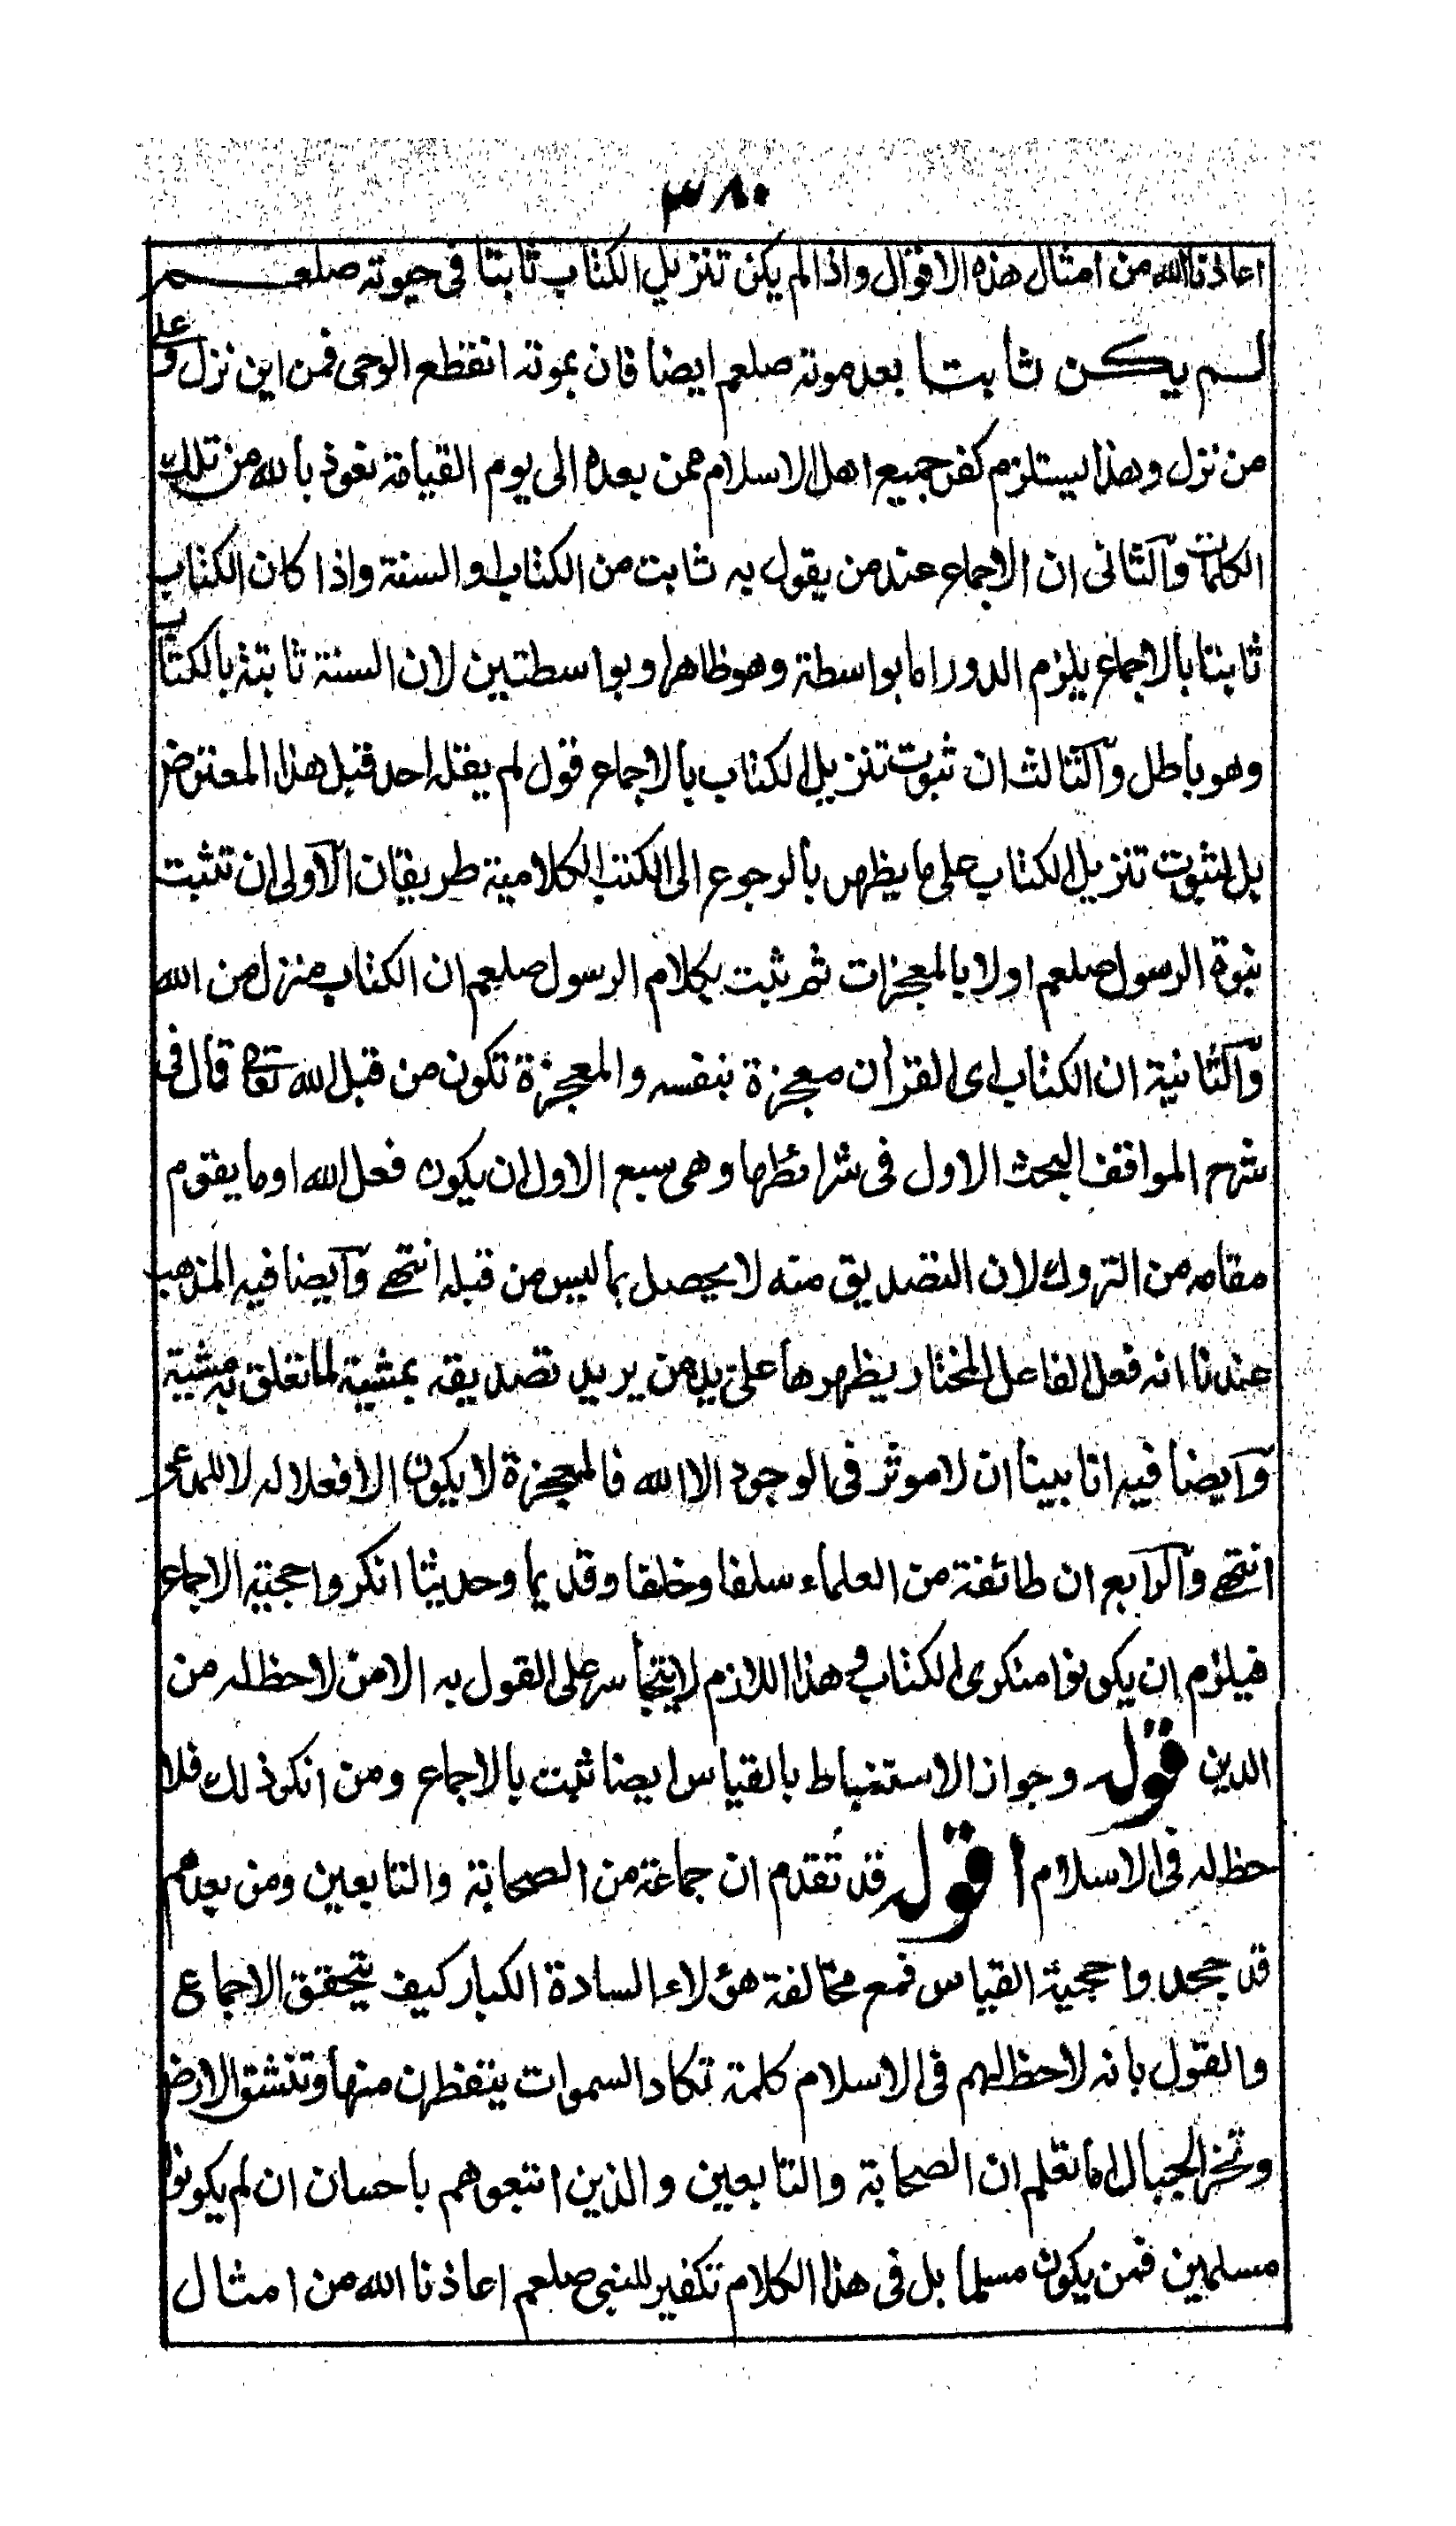 ٣٨٠
اعاذنا الله من امثال هذه الاقوال واذا لم يكن تنزيل الكتاب ثابتا فى حيوته صلعم
لم يكن ثابتا بعد موته صلعم ايضا فان بموته انقطع الوحى فمن اين نزل وعلى
من نزل وهذا يستلزم كفر جميع اهل الاسلام ممن بعده الى يوم القيامة نعوذ بالله من تلك
الكلمات والثانى ان الاجماع عند من يقول به ثابت من الكتاب او السنة واذا كان الكتاب
ثابتا بالاجماع يلزم الدور اما بواسطة وهو ظاهر او بواسطتين لان السنة ثابتة بالكتاب
وهو باطل والثالث ان ثبوت تنزيل الكتاب بالاجماع قول لم يقله احد قبل هذا المعترض
بل لثبوت تنزيل الكتاب على ما يظهر بالرجوع الى الكتب الكلامية طريقان الاولى ان تثبت
نبوة الرسول صلعم اولا بالمعجزات ثم يثبت بكلام الرسول صلعم ان الكتاب منزل من الله
والثانية ان الكتاب اى القرآن معجزة بنفسه والمعجزة تكون من قبل الله تعالى قال فى
شرح المواقف البحث الاول فى شرائطها وهى سبع الاول ان يكون فعل الله او ما يقوم
مقامه من التروك لان التصديق منه لا يحصل بما ليس من قبله انتهى وايضا فيه المذهب
عندنا انه فعل الفاعل المختار يظهرها على يد من يريد تصديقه بمشية لما تعلق به مشيته
وايضا فيه انا بينا ان لا موثر فى الوجود الا الله فالمعجزة لا يكون الا فعلا له لا للمدعى
انتهى والرابع ان طائفة من العلماء سلفا وخلفا وقديما وحديثا انكروا حجية الاجماع
فيلزم ان يكونوا منكرى الكتاب و هذا اللازم لا يتجاسر على القول به الا من لا حظ له من
الدين قوله وجواز الاستنباط بالقياس ايضا ثبت بالاجماع ومن انكر ذلك فلا
حظ له فى الاسلام اقول قد تقدم ان جماعة من الصحابة والتابعين ومن بعدهم
قد جحدوا حجية القياس فمع مخالفة هؤلاء السادة الكبار كيف يتحقق الاجماع
والقول بانه لا حظ لهم فى الاسلام كلمة تكاد السموات يتفطرن منها وتنشق الارض
وتخر الجبال اما تعلم ان الصحابة والتابعين والذين اتبعوهم باحسان ان لم يكونوا
مسلمين فمن يكون مسلما بل فى هذا الكلام تكفير للنبى صلعم اعاذنا الله من امثال